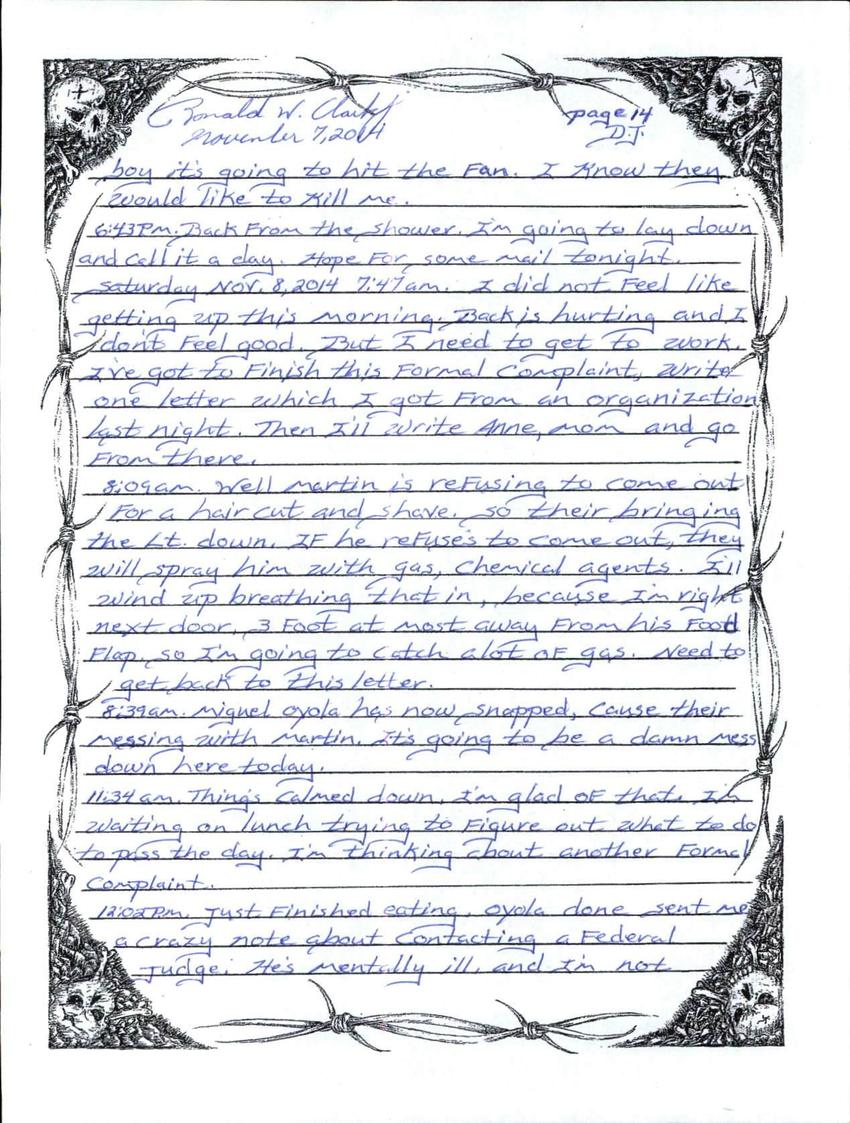 Ronald W. Clark Jr
page 14
November 7, 2014
D.J.
boy it's going to hit the Fan. I Know they
would like to Kill me.
6:43Pm. Back From the shower. I'm going to lay down
and call it a day. Hope For some mail tonight.
Saturday Nov. 8, 2014 7:47am. I did not Feel like
getting up this morning. Back is hurting and I
don't Feel good. But I need to get to work.
I've got to Finish this Formal Complaint, write
one letter which I got From an organization
last night. Then I'll write Anne, mom and go
From there.
8:09am. Well Martin is reFusing to come out
For a hair cut and shave. So their bringing
the Lt. down. IF he reFuse's to come out, they
will spray him with gas, Chemical agents. I'll
wind up breathing that in, because I'm right
next door, 3 Foot at most away From his Food
Flap. so I'm going to Catch alot oF gas. Need to
get back to this letter.
8:39am. Miguel Oyola has now snapped, Cause their
messing with Martin. It's going to be a damn mess
down here today.
11:34 am. Thing's Calmed down. I'm glad oF that. I'm
waiting on lunch trying to Figure out what to do
to pass the day. I'm thinking about another Formal
Complaint.
12:02Pm. Just Finished eating. Oyola done sent me
a crazy note about Contacting a Federal
Judge. He's mentally ill, and I'm not